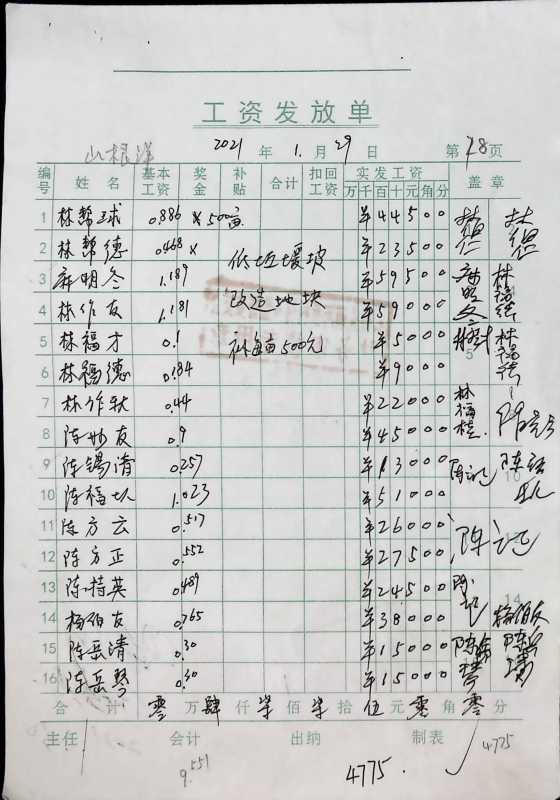 工资发放单
山根洋 2021年1月29日 第18页
编号 姓名 基本工资 奖金 补贴 合计 扣回工资 实发工资 盖章
万千百十元角分
1 林帮球 0.886 ×500亩 ¥44500
2 林帮德 0.468 × ¥23500
低垃堰坡
3 麻明冬 1.189 ¥59500
4 林作友 1.181 改造地块 ¥59000
5 林福才 0.1 补每亩500元 ¥5000
6 林福德 0.184 ¥9000
7 林作秋 0.44 ¥22000 林福桂
8 陈妙友 0.9 ¥45000
9 陈锡清 0.257 ¥13000
10 陈福圦 1.023 ¥51000
11 陈方云 0.517 ¥26000 陈记
12 陈方正 0.552 ¥27500
13 陈持英 0.489 ¥24500
14 杨伯友 0.765 ¥38000 杨伯友
15 陈岳清 0.30 ¥15000
16 陈岳琴 0.30 ¥15000
合计 零万肆仟柒佰柒拾伍元零角零分
主任 会计 出纳 制表 4775
9.551 4775.